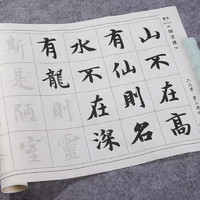 山不在高
有仙則名
水不在深
有龍則靈
斯是陋室